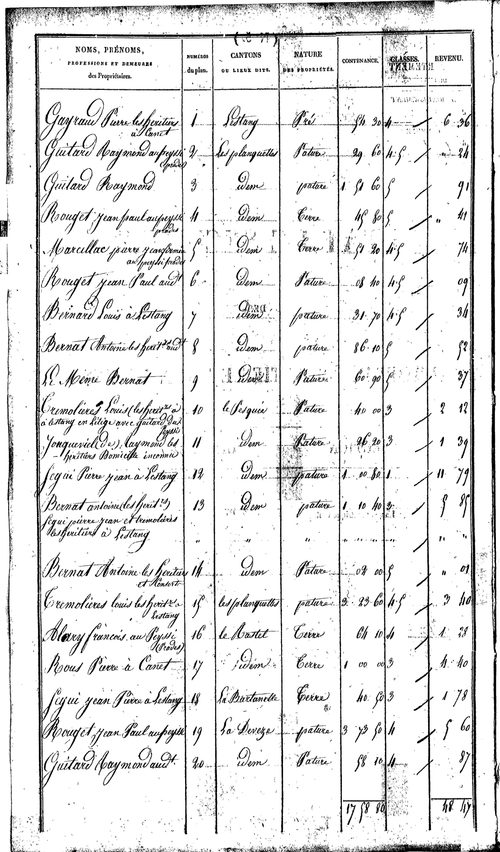 NOMS, PRÉNOMS, PROFESSIONS ET DEMEURES des Propriétaires. NUMÉROS du plan. CANTONS OU LIEUX DITS. NATURE DES PROPRIÉTÉS. CONTENANCE. CLASSES. REVENU.
Gayraud Pierre les héritiers 1 Lestang Pré 54 30 4 6 36
à Canet
Guitard Raymond au peyssi 2 Les planquettes Pature 29 60 4.5 " 24
(prades)
Guitard Raymond 3 idem pature 1 51 60 5 91
Rouget jean paul au peyssi 4 idem Terre 45 80 5 " 41
prades
Marcillac pierre jean 5 idem Terre 51 20 4.5 74
au peyssi prades
Rouget jean Paul audt 6 idem Pature 08 40 4.5 09
Bernard Louis à Lestang 7 idem pature 31 70 4.5 34
Bernat Antoine les herit.rs audt 8 idem pature 86 10 5 52
Le Même Bernat 9 idem Pature 60 90 5 37
Tremolières Louis (les herit.rs à 10 le Pesquié Pature 40 00 3 2 12
à Lestang en Litige avec guitard du
Peyssi
Jonqueviel (de) Raymond les 11 idem Pature 26 20 3 1 39
héritiers Domicile inconnu
Segui Pierre jean à Lestang 12 idem pature 1 00 80 1 11 79
Bernat antoine (les herit.rs) 13 idem pature 1 10 40 3 5 85
Segui pierre jean et tremolières
les héritiers à Lestang " " " " " " "
Bernat Antoine les héritiers 14 idem Pature 02 00 5 " 01
et Consort
Tremolières louis les herit.rs à 15 les planquettes pature 3 23 60 4.5 3 40
Lestang
Alary françois, au Peyssi 16 le Bastet Terre 64 10 4 1 28
(Prades)
Rous Pierre à Canet 17 idem Terre 1 00 00 3 4 40
Segui jean Pierre à Lestang 18 La Bartanelle Terre 40 50 3 1 78
Rouget jean Paul au peyssi 19 La Deveze pature 3 73 50 4 5 60
Guitard Raymond audt 20 idem Pature 58 10 4 87
17 58 80 48 47